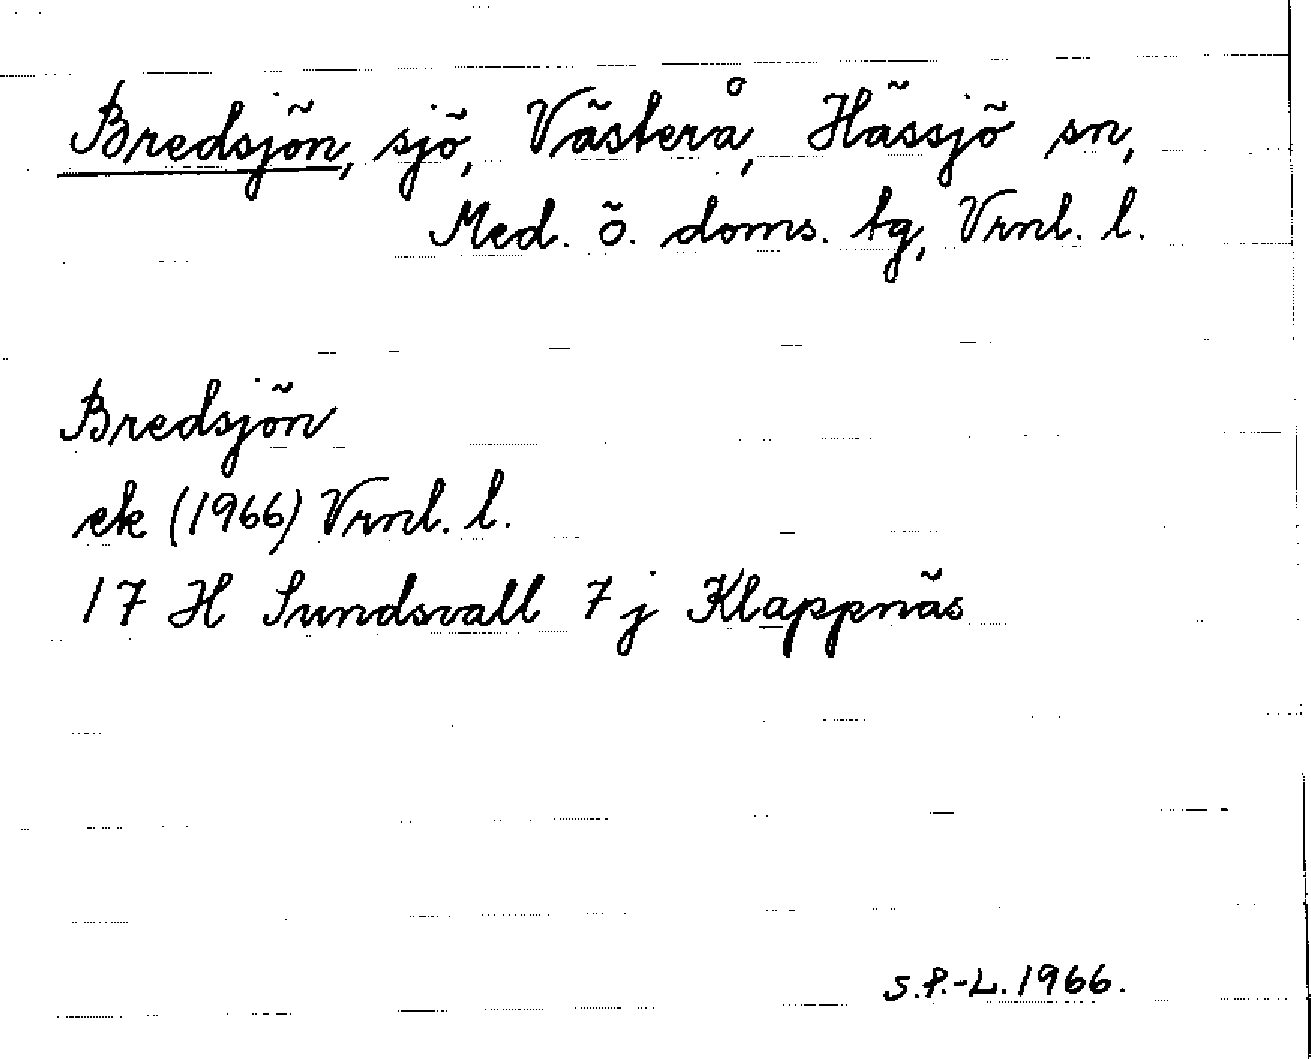 Bredsjön, sjö, Västerå, Hässjö sn,
Med. ö. doms. tg, Vrnl. l.
Bredsjön
ek (1966) Vrnl. l.
17 H Sundsvall 7 j Klappnäs
S.P.-L. 1966.